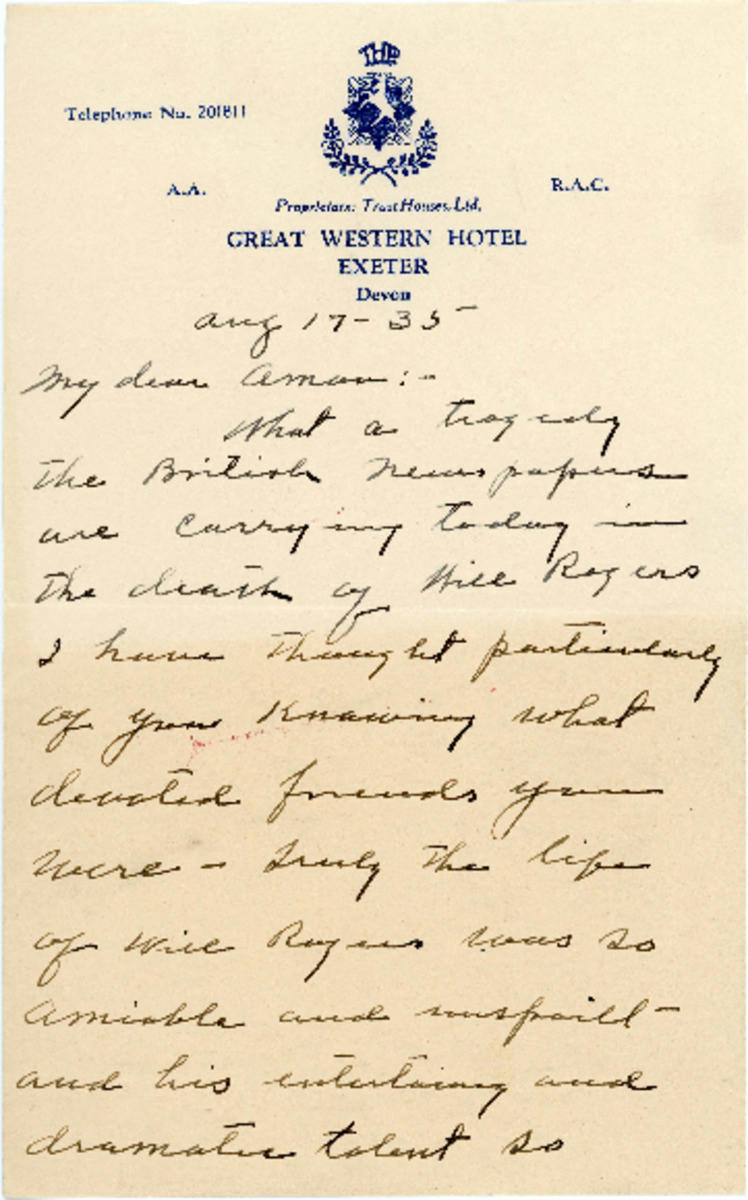 THP
Telephone No. 201811
A.A.
R.A.C.
Proprietors: Trust Houses, Ltd.
GREAT WESTERN HOTEL
EXETER
Devon
Aug 17 - 35
My dear Amon : -
What a tragedy
the British newspapers
are carrying today in
the death of Will Rogers
I have thought particularly
of you knowing what
devoted friends you
were - truly the life
of Will Rogers was so
amiable and unspoilt -
and his entertaining and
dramatic talent so